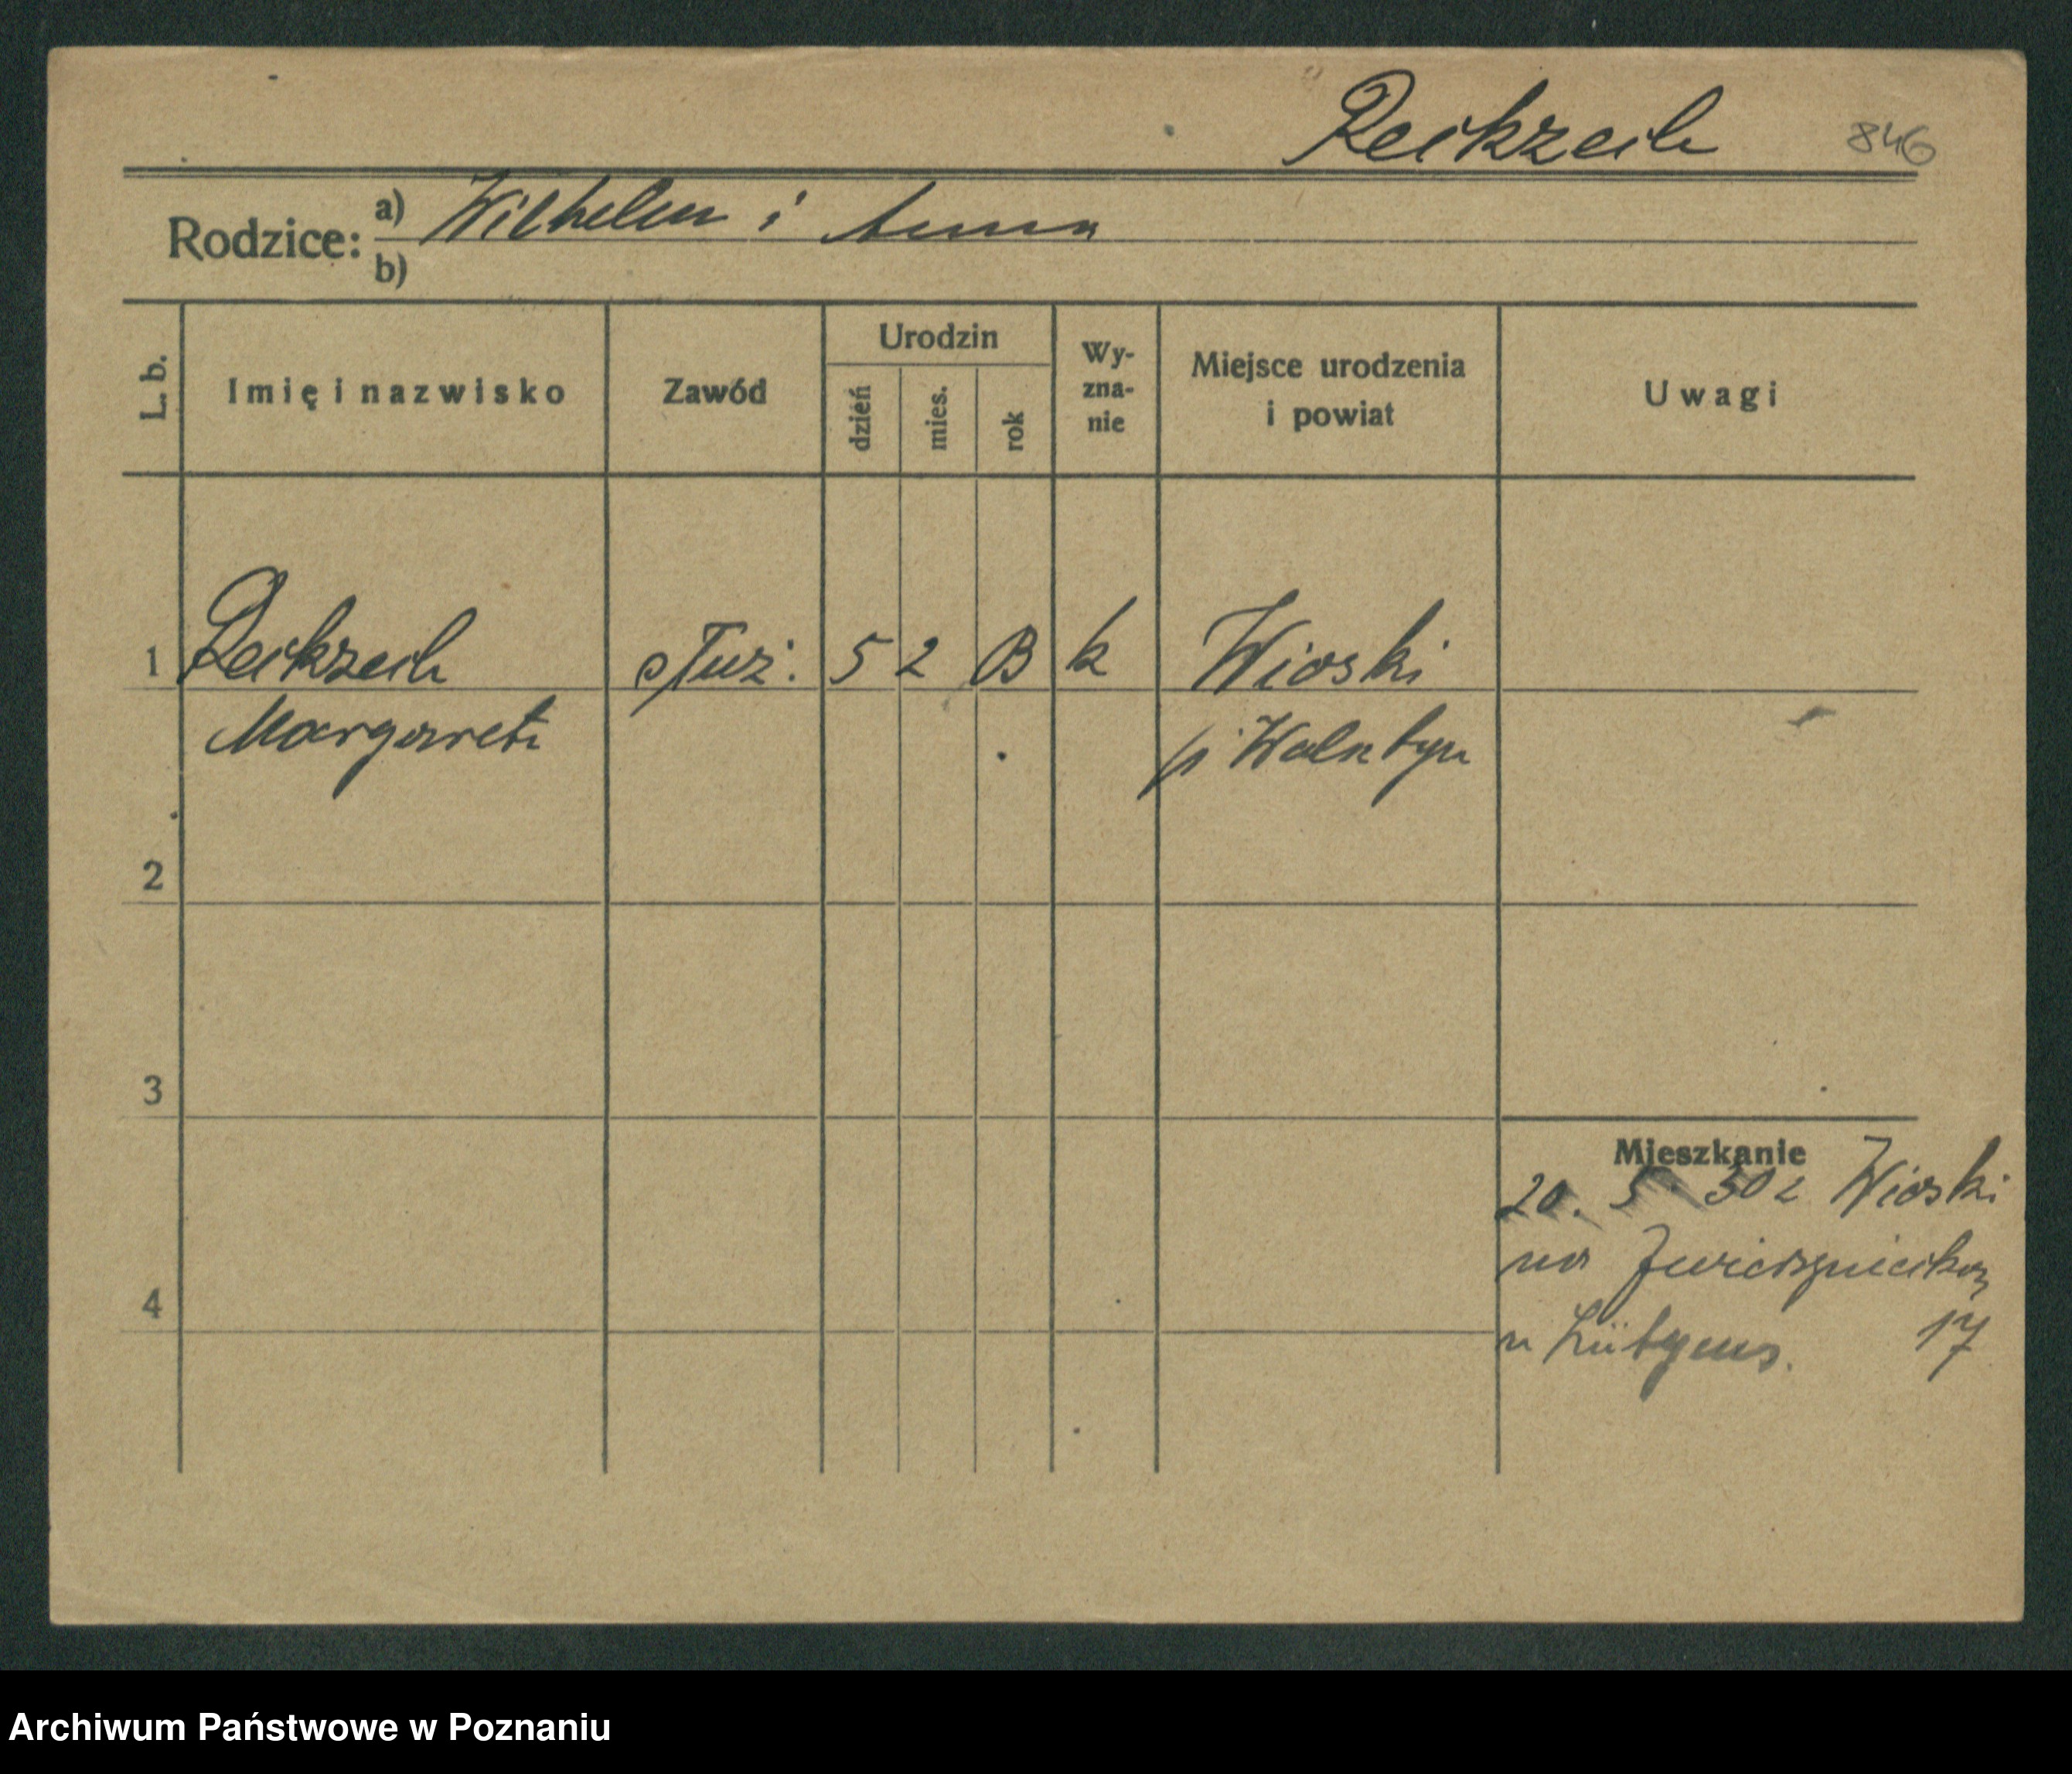 Reikzeih 846
Rodzice: a) Wilhelm i Anna
b)
L. b. Imię i nazwisko Zawód Urodzin dzień mies. rok Wy-zna-nie Miejsce urodzenia i powiat Uwagi
1 Reikzeih służ. 5 2 13 k Wioski
Margarete p. Wolsztyn
2
3
Mieszkanie
20. 5. 30 z Wioski
na Zwierzyniecką
4
u Lütgens. 17
Archiwum Państwowe w Poznaniu